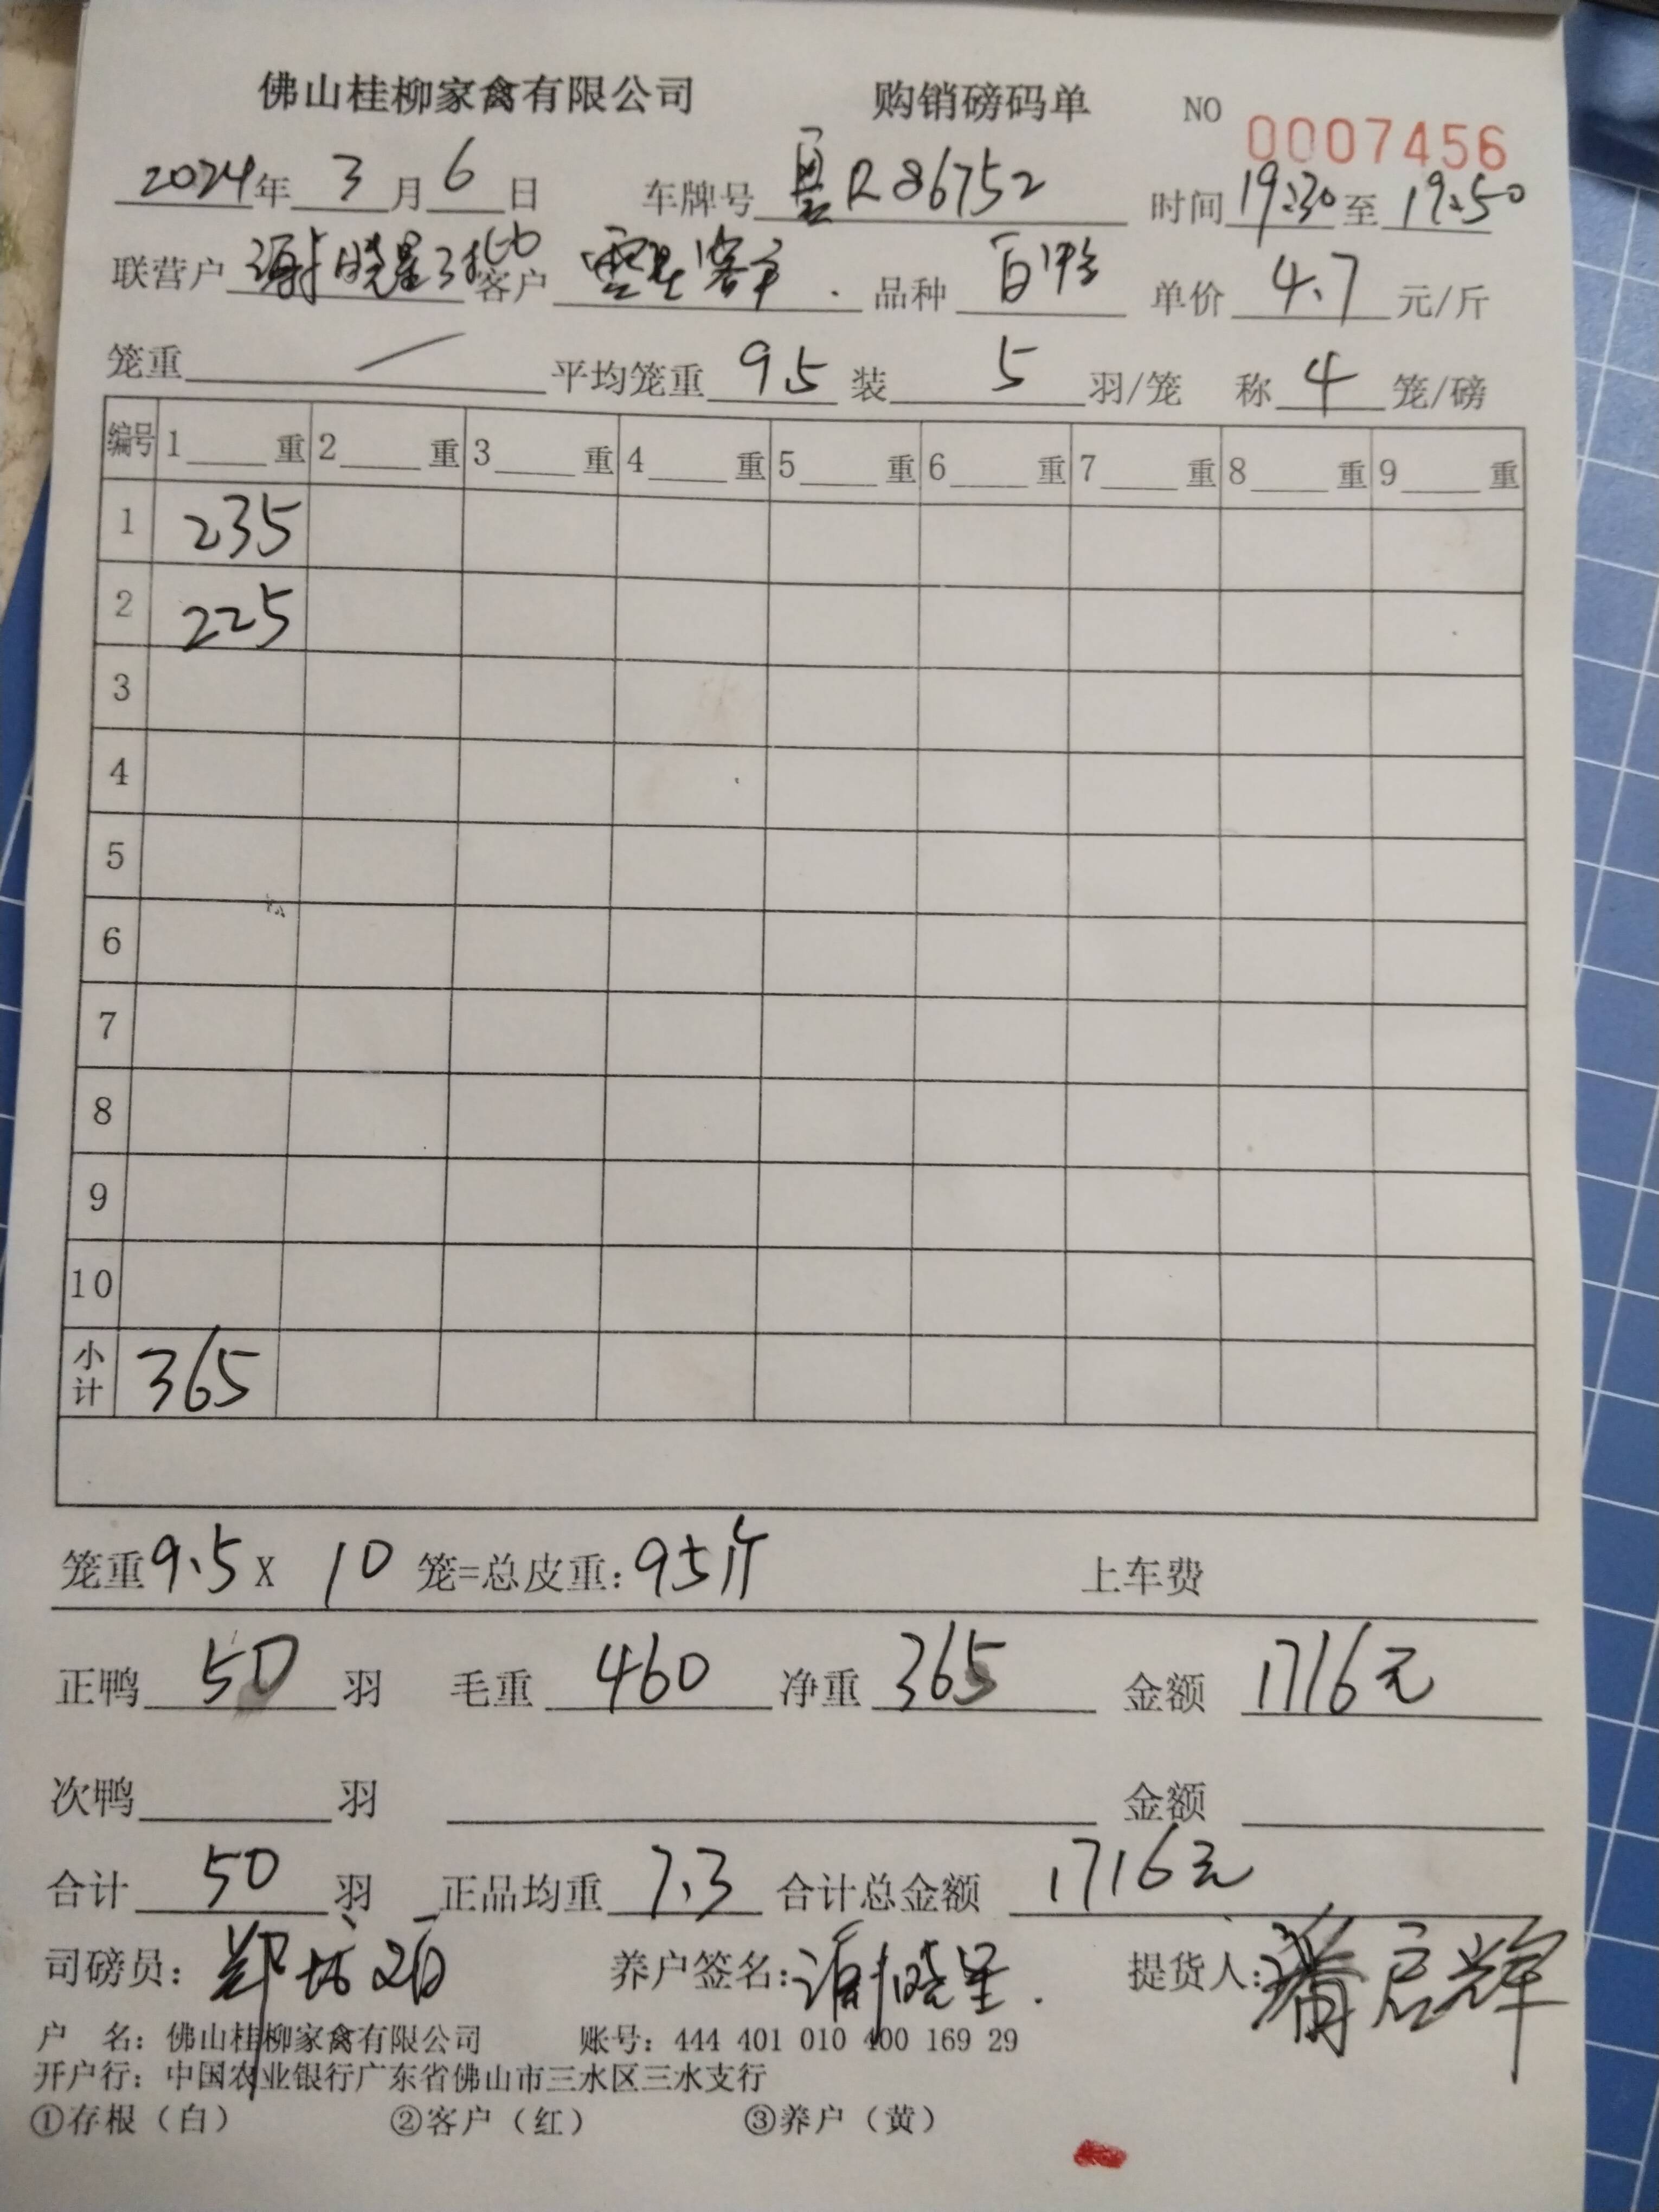 佛山桂柳家禽有限公司 购销磅码单 NO 0007456
2024年 3 月 6 日 车牌号 粤R86752 时间 19:30 至 19:50
联营户 谢晓星 客户 品种 白鸭 单价 4.7 元/斤
笼重 / 平均笼重 9.5 装 5 羽/笼 称 4 笼/磅
编号 1 重 2 重 3 重 4 重 5 重 6 重 7 重 8 重 9 重
1 235
2 225
3
4
5
6
7
8
9
10
小计 365
笼重9.5 X 10 笼=总皮重:95斤 上车费
正鸭 50 羽 毛重 460 净重 365 金额 1716元
次鸭 羽 金额
合计 50 羽 正品均重 7.3 合计总金额 1716元
司磅员: 养户签名:谢晓星. 提货人: 启辉
户 名: 佛山桂柳家禽有限公司 账号: 444 401 010 400 169 29
开户行: 中国农业银行广东省佛山市三水区三水支行
①存根（白） ②客户（红） ③养户（黄）